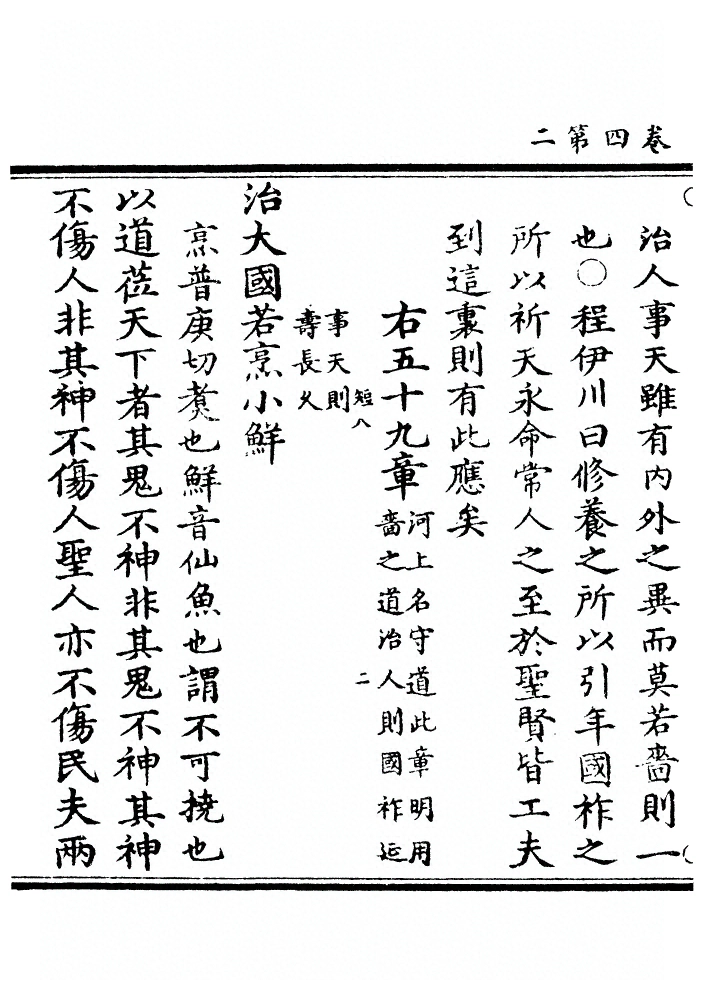 卷四第二
治人事天雖有內外之異而莫若嗇則一
也○程伊川曰修養之所以引年國祚之
所以祈天永命常人之至於聖賢皆工夫
到這裏則有此應矣
右五十九章
河上名守道此章明用
嗇之道治人則國祚延
二
短八
事天則
壽長久
治大國若烹小鮮
烹普庚切煑也鮮音仙魚也謂不可撓也
以道莅天下者其鬼不神非其鬼不神其神
不傷人非其神不傷人聖人亦不傷民夫兩